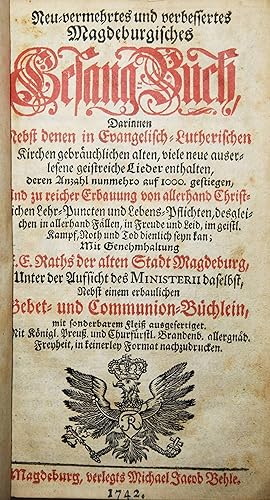 Neu-vermehrtes und verbessertes
Magdeburgisches
Gesang-Buch,
Darinnen
Nebst denen in Evangelisch-Lutherischen
Kirchen gebräuchlichen alten, viele neue auser-
lesene geistreiche Lieder enthalten,
deren Anzahl nunmehro auf 1000. gestiegen,
Und zu reicher Erbauung von allerhand Christ-
lichen Lehr-Puncten und Lebens-Pflichten, desglei-
chen in allerhand Fällen, in Freude und Leid, im geistl.
Kampf, Noth und Tod dienlich seyn kan;
Mit Genehmhaltung
E. E. Raths der alten Stadt Magdeburg,
Unter der Aufsicht des MINISTERII daselbst,
Nebst einem erbaulichen
Gebet- und Communion-Büchlein,
mit sonderbarem Fleiß ausgefertiget.
Mit Königl. Preuß. und Churfürstl. Brandenb. allergnäd.
Freyheit, in keinerley Format nachzudrucken.
R
Magdeburg, verlegts Michael Jacob Vehle.
1742.